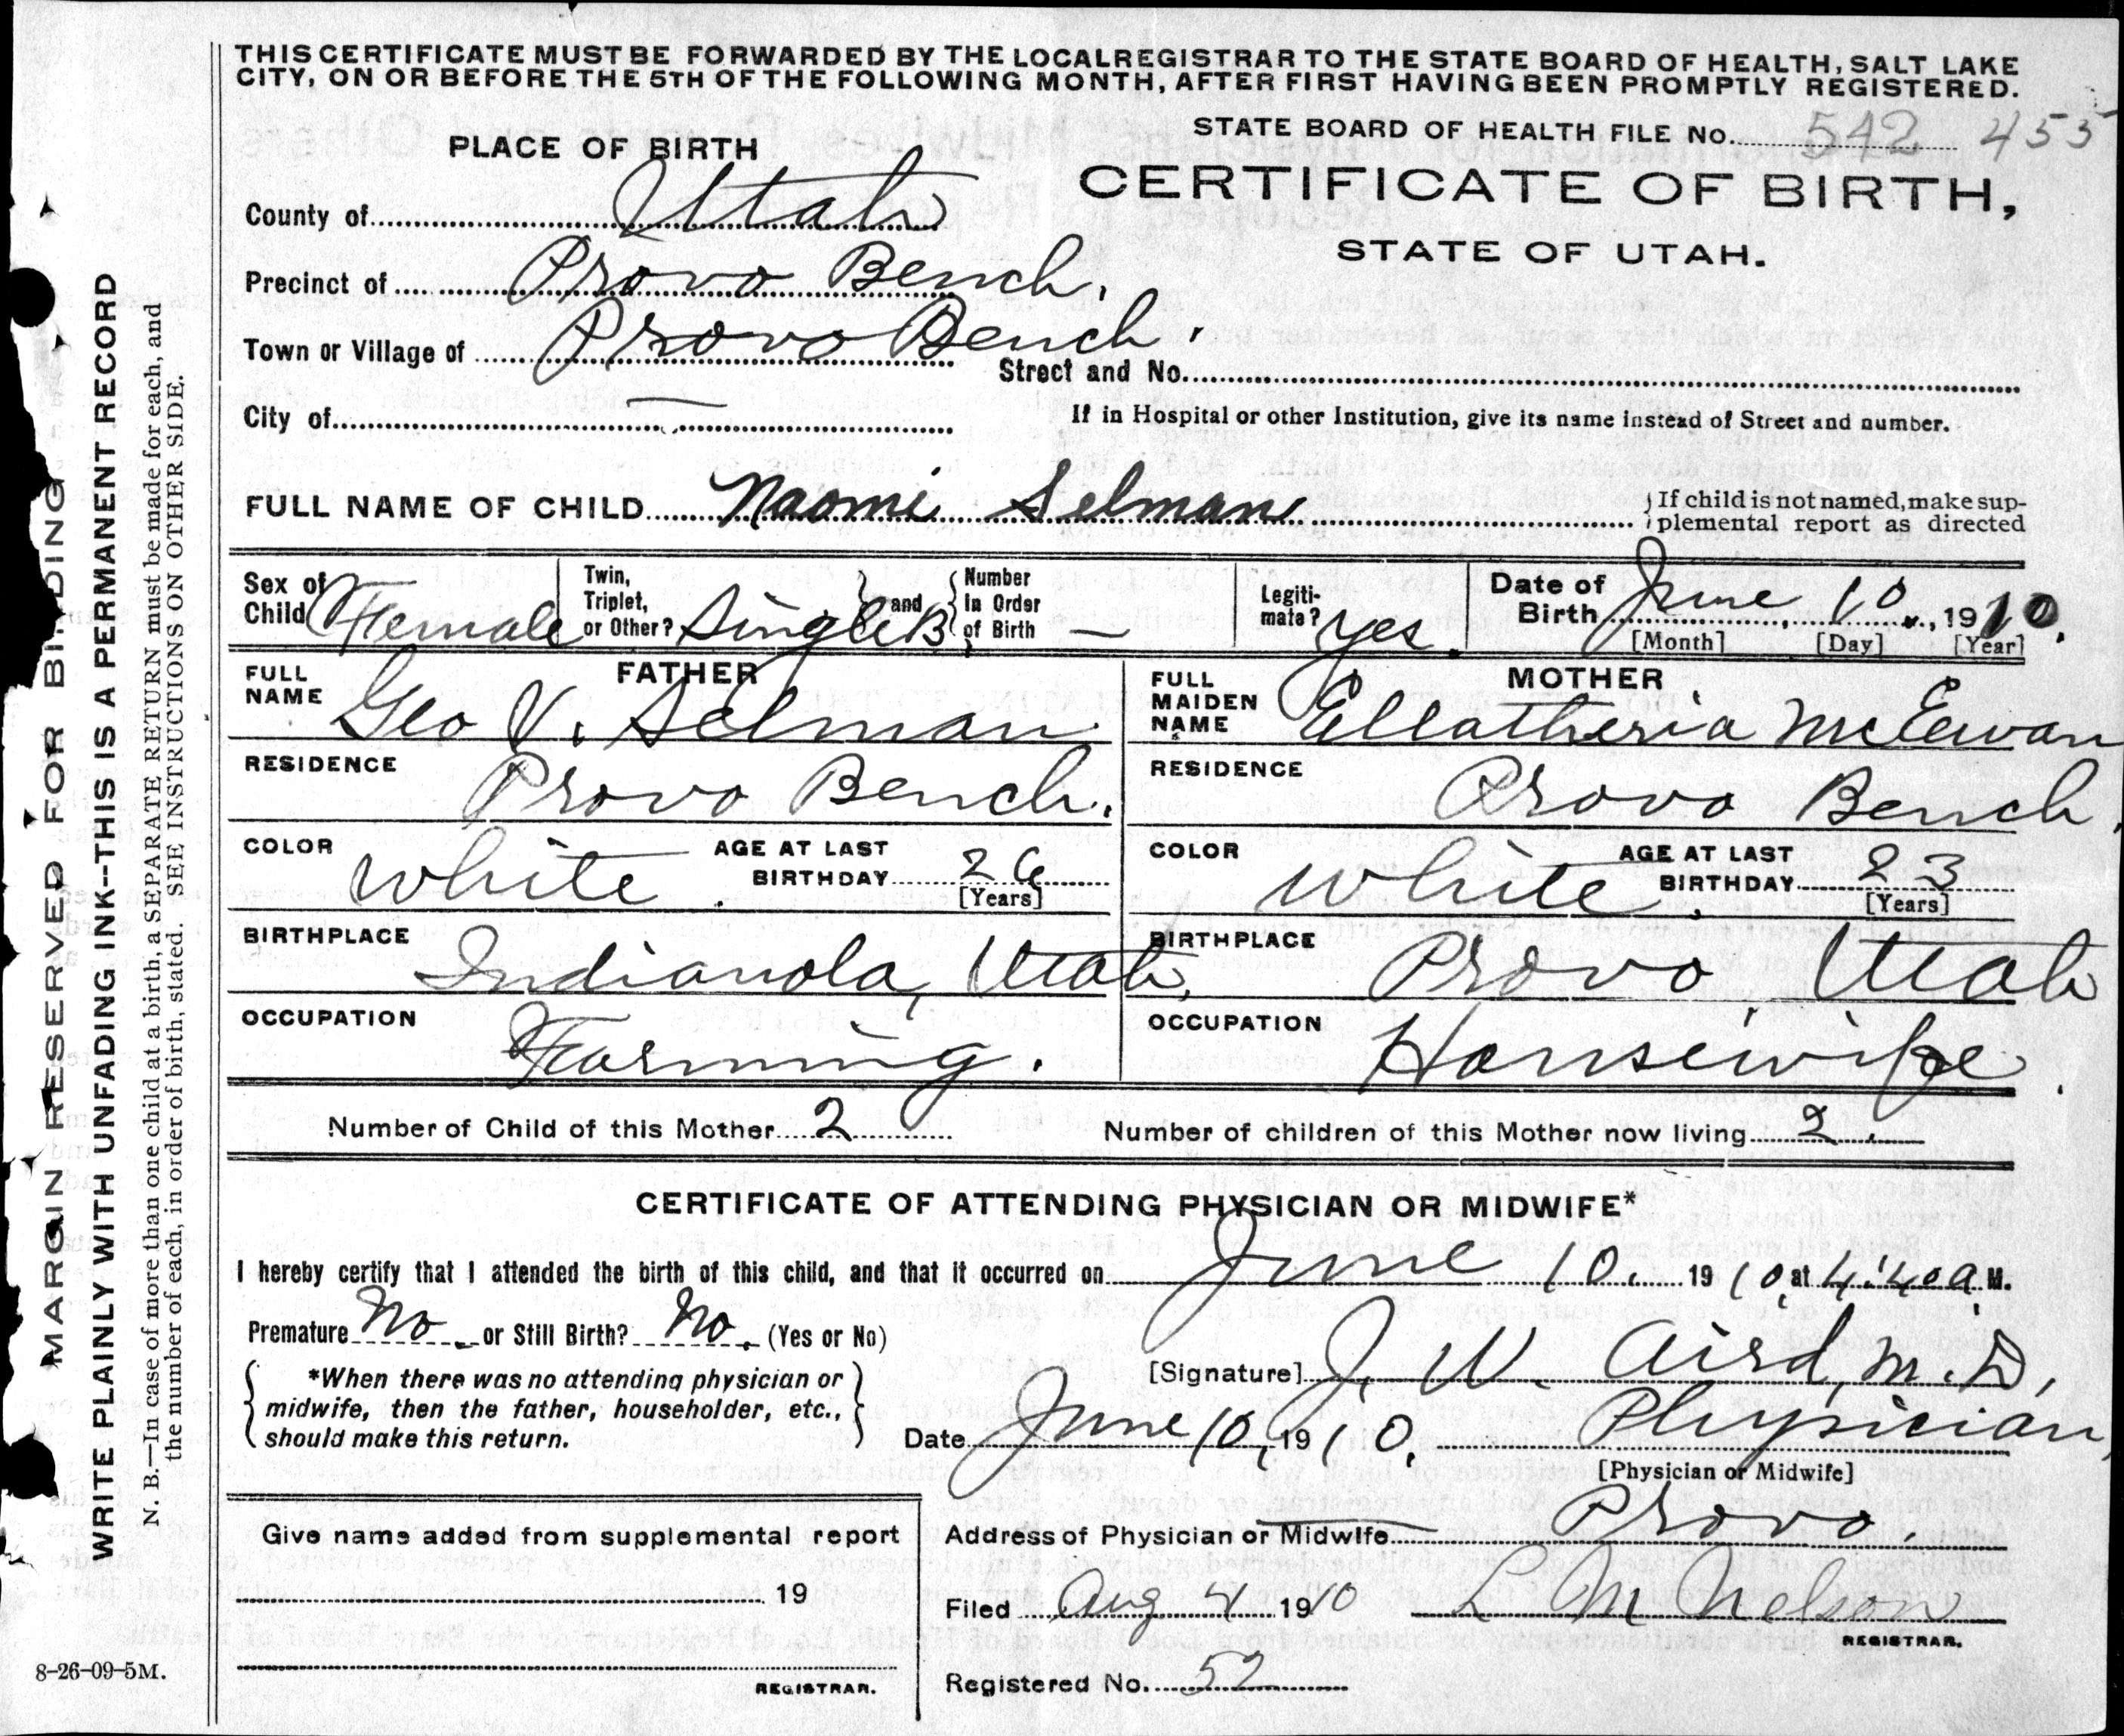 THIS CERTIFICATE MUST BE FORWARDED BY THE LOCAL REGISTRAR TO THE STATE BOARD OF HEALTH, SALT LAKE
CITY, ON OR BEFORE THE 5TH OF THE FOLLOWING MONTH, AFTER FIRST HAVING BEEN PROMPTLY REGISTERED.
STATE BOARD OF HEALTH FILE No. 542 455
PLACE OF BIRTH
CERTIFICATE OF BIRTH,
STATE OF UTAH.
County of Utah
Precinct of Provo Bench.
Town or Village of Provo Bench.
Street and No.
City of —
If in Hospital or other Institution, give its name instead of Street and number.
FULL NAME OF CHILD Naomi Selman
If child is not named, make sup-
plemental report as directed
Sex of Child Female
Twin, Triplet, or Other? Single
and Number in Order of Birth —
Legiti-mate? Yes.
Date of Birth June 10, 1910.
[Month] [Day] [Year]
FATHER
FULL NAME Geo V. Selman
RESIDENCE Provo Bench.
COLOR White.
AGE AT LAST BIRTHDAY 26
[Years]
BIRTHPLACE Indianola, Utah.
OCCUPATION Farming.
MOTHER
FULL MAIDEN NAME Ellatheria McEwan
RESIDENCE Provo Bench.
COLOR White.
AGE AT LAST BIRTHDAY 23
[Years]
BIRTHPLACE Provo, Utah
OCCUPATION Housewife.
Number of Child of this Mother 2
Number of children of this Mother now living 2.
CERTIFICATE OF ATTENDING PHYSICIAN OR MIDWIFE*
I hereby certify that I attended the birth of this child, and that it occurred on June 10. 1910, at 4:40 a.M.
Premature No. or Still Birth? No. (Yes or No)
*When there was no attending physician or
midwife, then the father, householder, etc.,
should make this return.
[Signature] J. W. Aird, M.D.,
Date June 10, 1910. Physician,
[Physician or Midwife]
Give name added from supplemental report
19
REGISTRAR.
Address of Physician or Midwife Provo.
Filed Aug 4 1910 L M Nelson
REGISTRAR.
Registered No. 52
8-26-09-5M.
MARGIN RESERVED FOR BINDING
WRITE PLAINLY WITH UNFADING INK--THIS IS A PERMANENT RECORD
N. B.—In case of more than one child at a birth, a SEPARATE RETURN must be made for each, and
the number of each, in order of birth, stated. SEE INSTRUCTIONS ON OTHER SIDE.